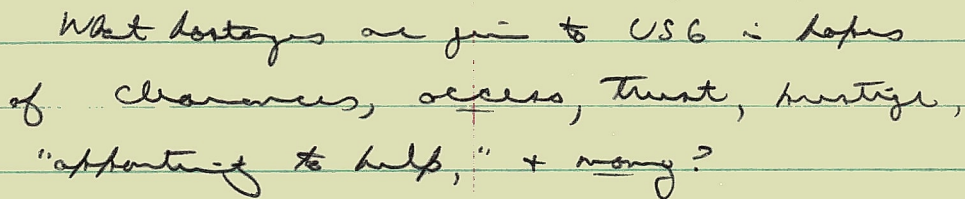 What hostages are given to USG in hopes
of clearances, access, trust, prestige,
"opportunity to help," + money?